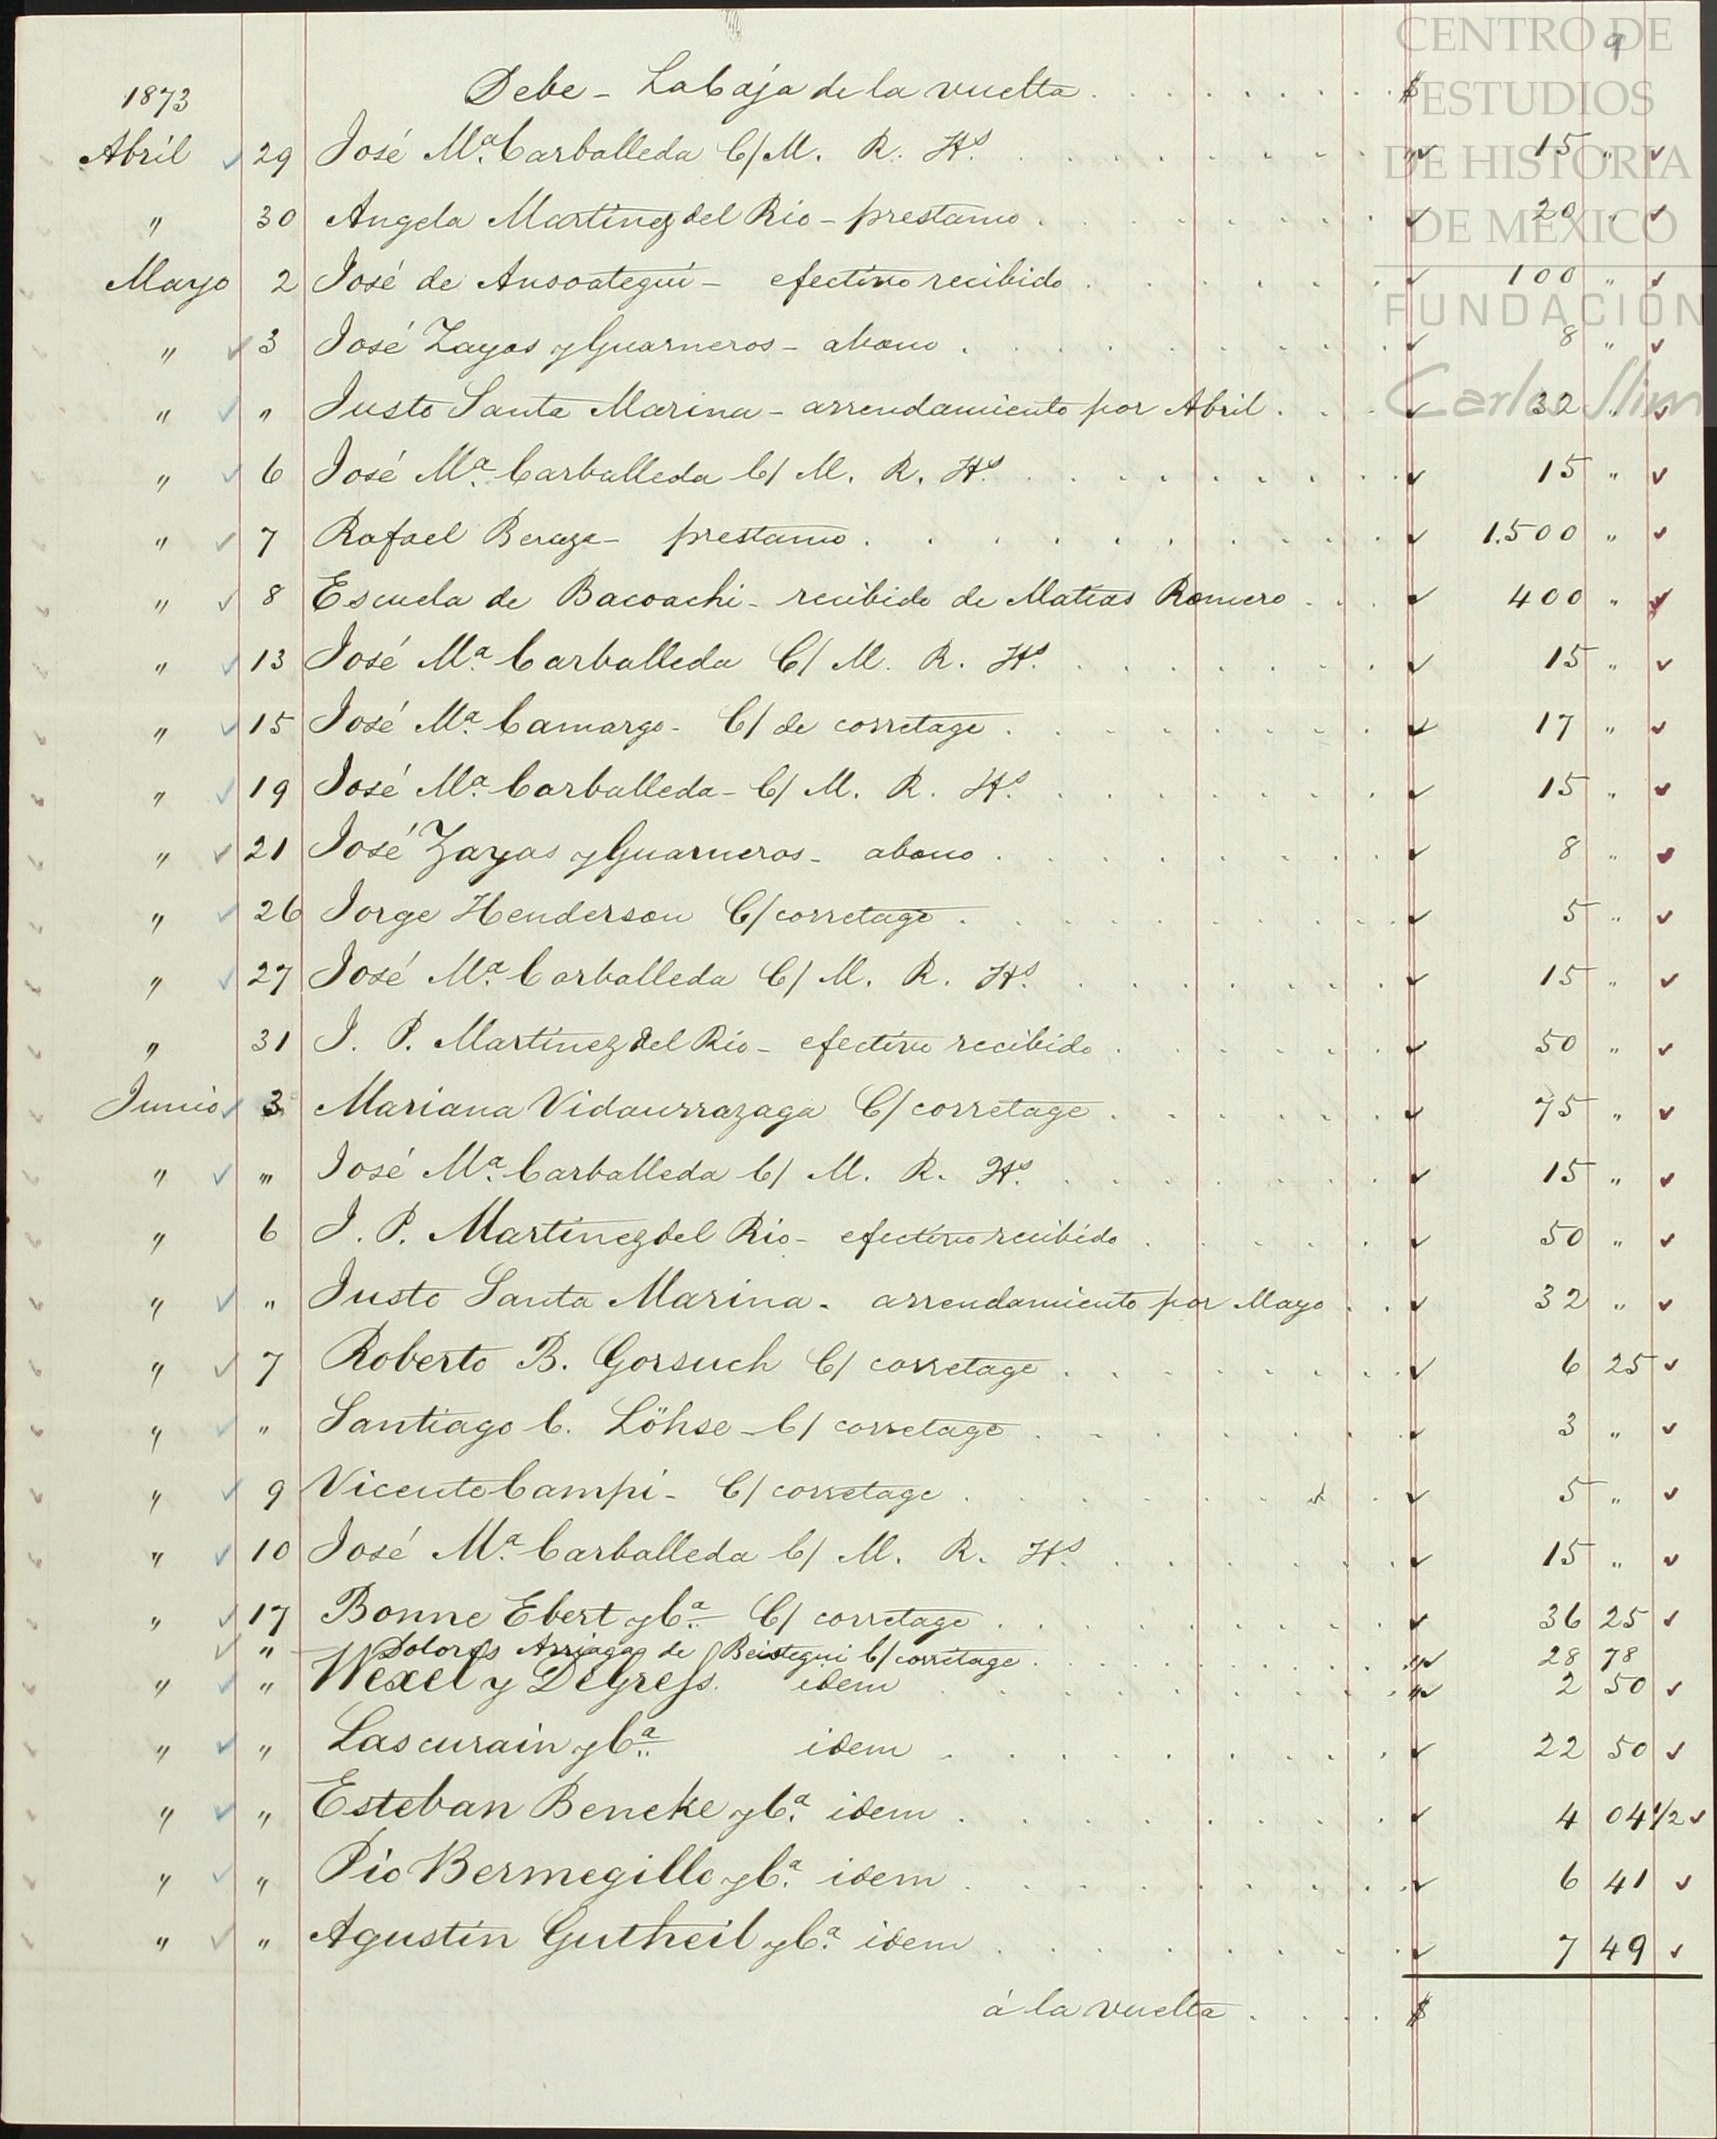 9
CENTRO DE
ESTUDIOS
DE HISTORIA
DE MEXICO
FUNDACIÓN
Carlos Slim
1873 Debe - La Caja de la vuelta . . . . . . . . . $
Abril 29 José Mª. Carballeda C/ M. R. Hs. . . . . . . . . " 15 "
" 30 Angela Martinez del Rio - prestamo . . . . . . . . 20 "
Mayo 2 José de Ansoategui - efectivo recibido . . . . . . 100 "
" 3 José Zayas y Guarneros - abono . . . . . . . . . 8 "
" " Justo Santa Marina - arrendamiento por Abril . . . 32 "
" 6 José Mª. Carballeda C/ M. R. Hs. . . . . . . . . 15 "
" 7 Rafael Beraza - prestamo . . . . . . . . . . 1.500 "
" 8 Escuela de Bacoachi - recibido de Matias Romero . . . 400 "
" 13 José Mª. Carballeda C/ M. R. Hs. . . . . . . . 15 "
" 15 José Mª. Camargo - C/ de corretage . . . . . . . . 17 "
" 19 José Mª. Carballeda - C/ M. R. Hs. . . . . . . . 15 "
" 21 José Zayas y Guarneros - abono . . . . . . . . 8 "
" 26 Jorge Henderson C/ corretage . . . . . . . . . 5 "
" 27 José Mª. Carballeda C/ M. R. Hs. . . . . . . . 15 "
" 31 J. P. Martinez del Rio - efectivo recibido . . . . . . 50 "
Junio 3 Mariana Vidaurrazaga C/ corretage . . . . . . . 75 "
" " José Mª. Carballeda C/ M. R. Hs. . . . . . . . 15 "
" 6 J. P. Martinez del Rio - efectivo recibido . . . . . 50 "
" " Justo Santa Marina - arrendamiento por Mayo . . 32 "
" 7 Roberto B. Gorsuch C/ corretage . . . . . . . . 6 25
" " Santiago C. Löhse - C/ corretage . . . . . . . . 3 "
" 9 Vicente Campi - C/ corretage . . . . . . . . 5 "
" 10 José Mª. Carballeda C/ M. R. Hs. . . . . . . . 15 "
" 17 Bonne Ebert y Cª. C/ corretage . . . . . . . . . 36 25
" Dolores Arriaga de Beistegui C/ corretage . . . . . . . . . " 28 78
" " Wexel y DeGress. idem . . . . . . . . . " 2 50
" " Lascurain y Cª. idem . . . . . . . . . 22 50
" " Esteban Beneke y Cª. idem . . . . . . . . . 4 04 1/2
" " Pio Bermegillo y Cª. idem . . . . . . . . . 6 41
" " Agustin Gutheil y Cª. idem . . . . . . . . 7 49
á la vuelta . . . . $